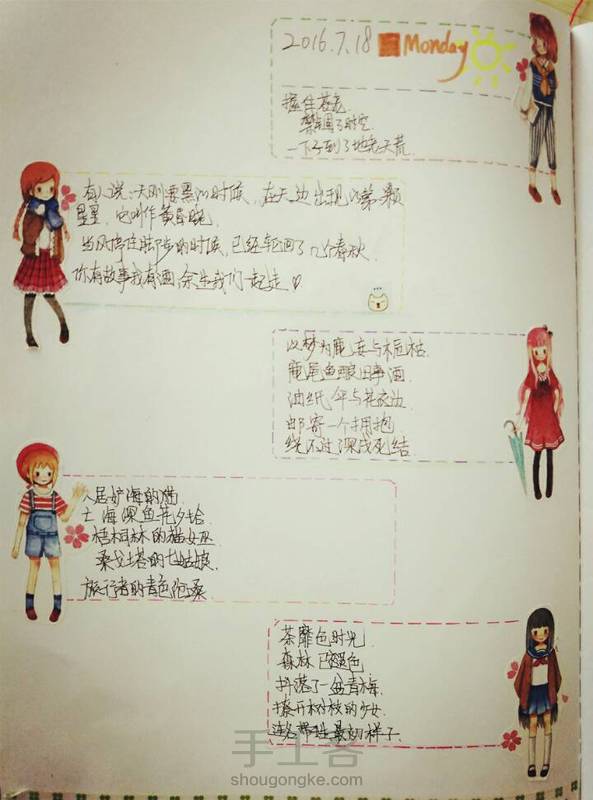 2016.7.18 Monday
握住苍老
禁锢了时空
一下子到了地老天荒
有人说:天刚要黑的时候,在天边出现的第一颗
星星,它叫作黄昏晓
当风停住脚步的时候,已经轮回了几个春秋
你有故事我有酒,余生我们一起走
以梦为鹿,妄与枯
鹿尾鱼酿旧事酒
油纸伞与花夜边
邮寄一个拥抱
绕不过深戌死结
人居妒海的猫
七海深鱼花夕拾
梧桐林的猫女巫
桑戈塔的七姑娘
旅行者的青色沧桑
荼靡色时光
森林已褪色
抖落了一盆青梅
撩开树枝的少女
还是最初样子
手工客
shougongke.com